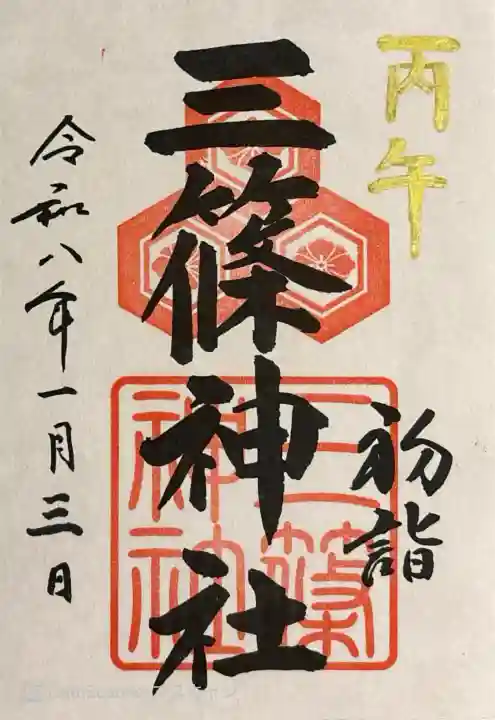 丙午
初詣
三篠神社
三篠
神社
令和八年一月三日